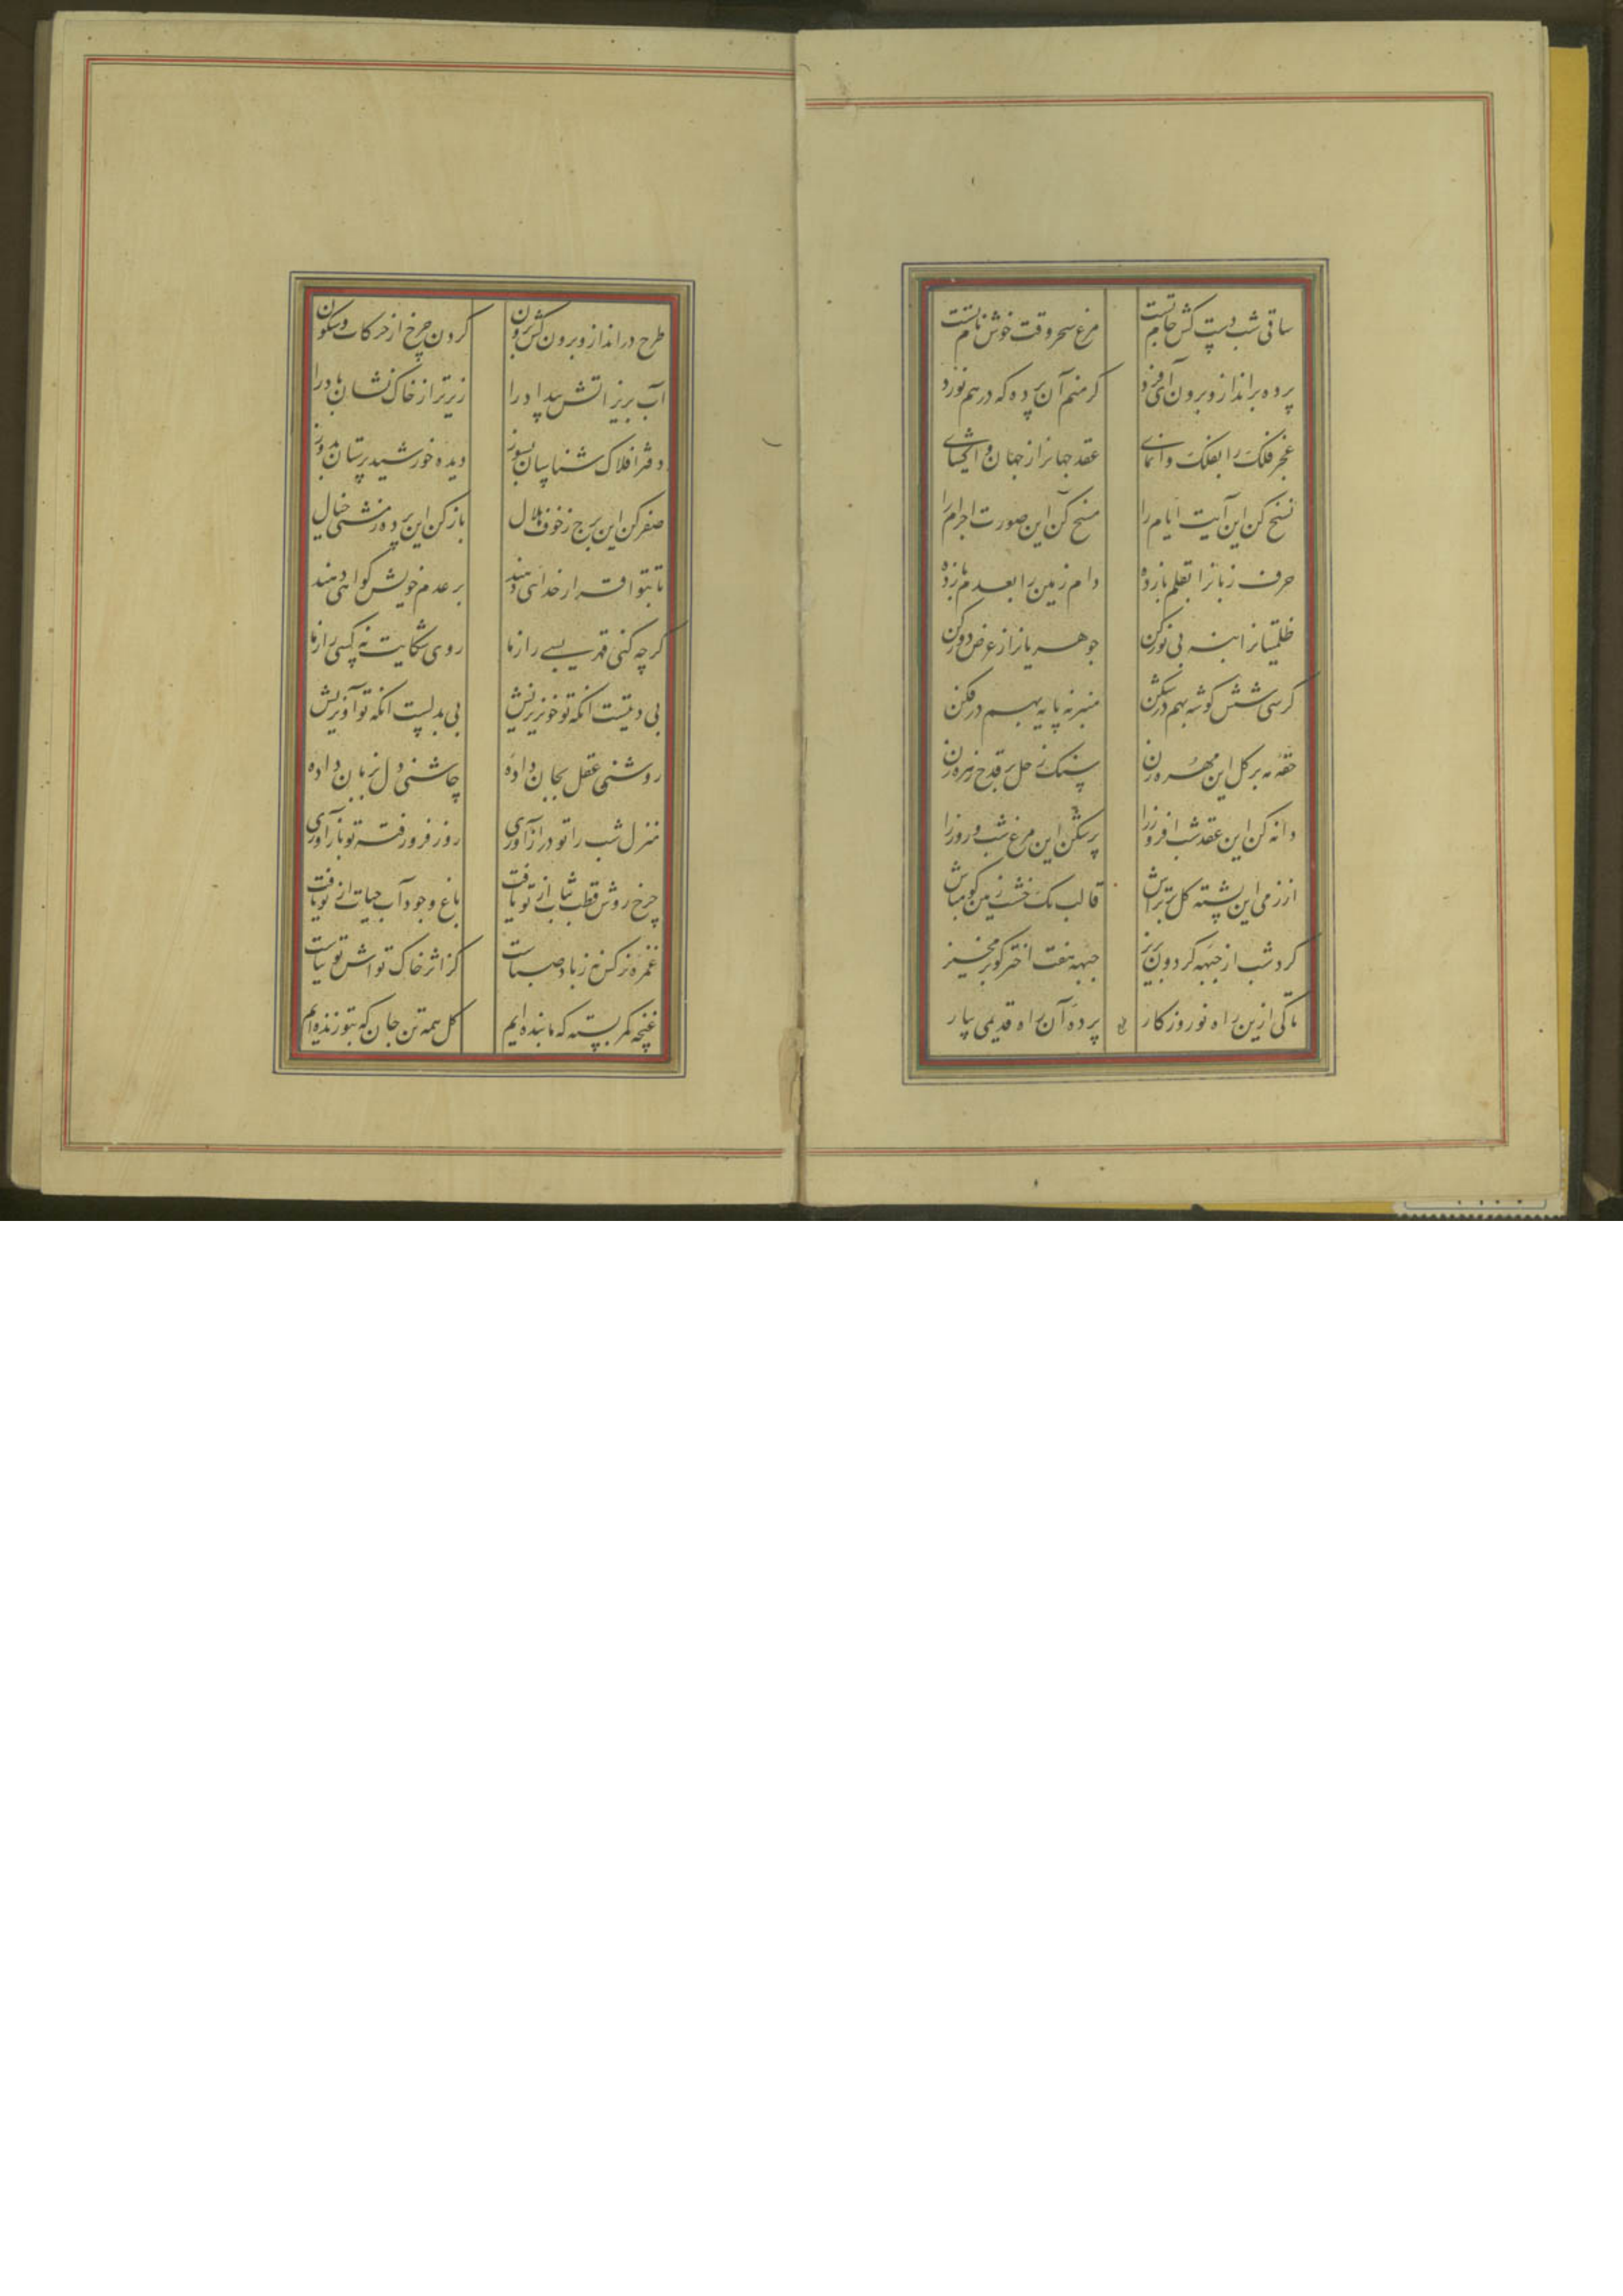 ساقی شب دستکش جام تست
مرغ سحر وقت خوش نام تست
پرده برانداز و برون آی فرد
گر منم آن پرده که درهم نورد
عجز فلک را بفلک وانمای
عقد جهانرا ز جهان واگشای
نسخ کن این آیت ایام را
مسخ کن این صورت اجرام را
حرف زبانرا بقلم بازده
دام زمین را بعدم بازده
ظلمتیانرا بنه بی نور کن
جوهریانرا ز عرض دور کن
کرسی شش گوشه بهم درشکن
منبر نه پایه بهم درفکن
حقه مه بر گل این مهره زن
سنگ زحل بر قدح زهره زن
دانه کن این عقد شب افروز را
پر بشکن این مرغ شب و روز را
از زمی این پشته گل برتراش
قالب یک خشت زمین گو مباش
گرد شب از جبهه گردون بریز
جبهه بیفت اختر گو برمخیز
تاکی ازین راه نو روزگار
پرده آن راه قدیمی بیار
طرح درانداز و برون کش برون
گردن چرخ از حرکات و سکون
آب بریز آتش بیداد را
زیرتر از خاک نشان باد را
دفتر افلاک شناسان بسوز
دیده خورشید پرستان بدوز
صفر کن این برج ز طوق هلال
باز کن این پرده ز مشتی خیال
تا بتو اقرار خدائی دهند
بر عدم خویش گواهی دهند
گرچه کنی قهر بسی را ز ما
روی شکایت نه کسی را ز ما
بی دیتست آنکه تو خونریزیش
بی بدلست آنکه تو آویزیش
روشنی عقل بجان داده
چاشنی دل بزبان داده
منزل شب را تو درازآوری
روز فرو رفته تو بازآوری
چرخ روش قطب ثبات از تو یافت
باغ وجود آب حیات از تو یافت
غمزه نرگس نه ز باد صباست
کز اثر خاک تواش توتیاست
غنچه کمر بسته که ما بنده ایم
گل همه تن جان که بتو زنده ایم